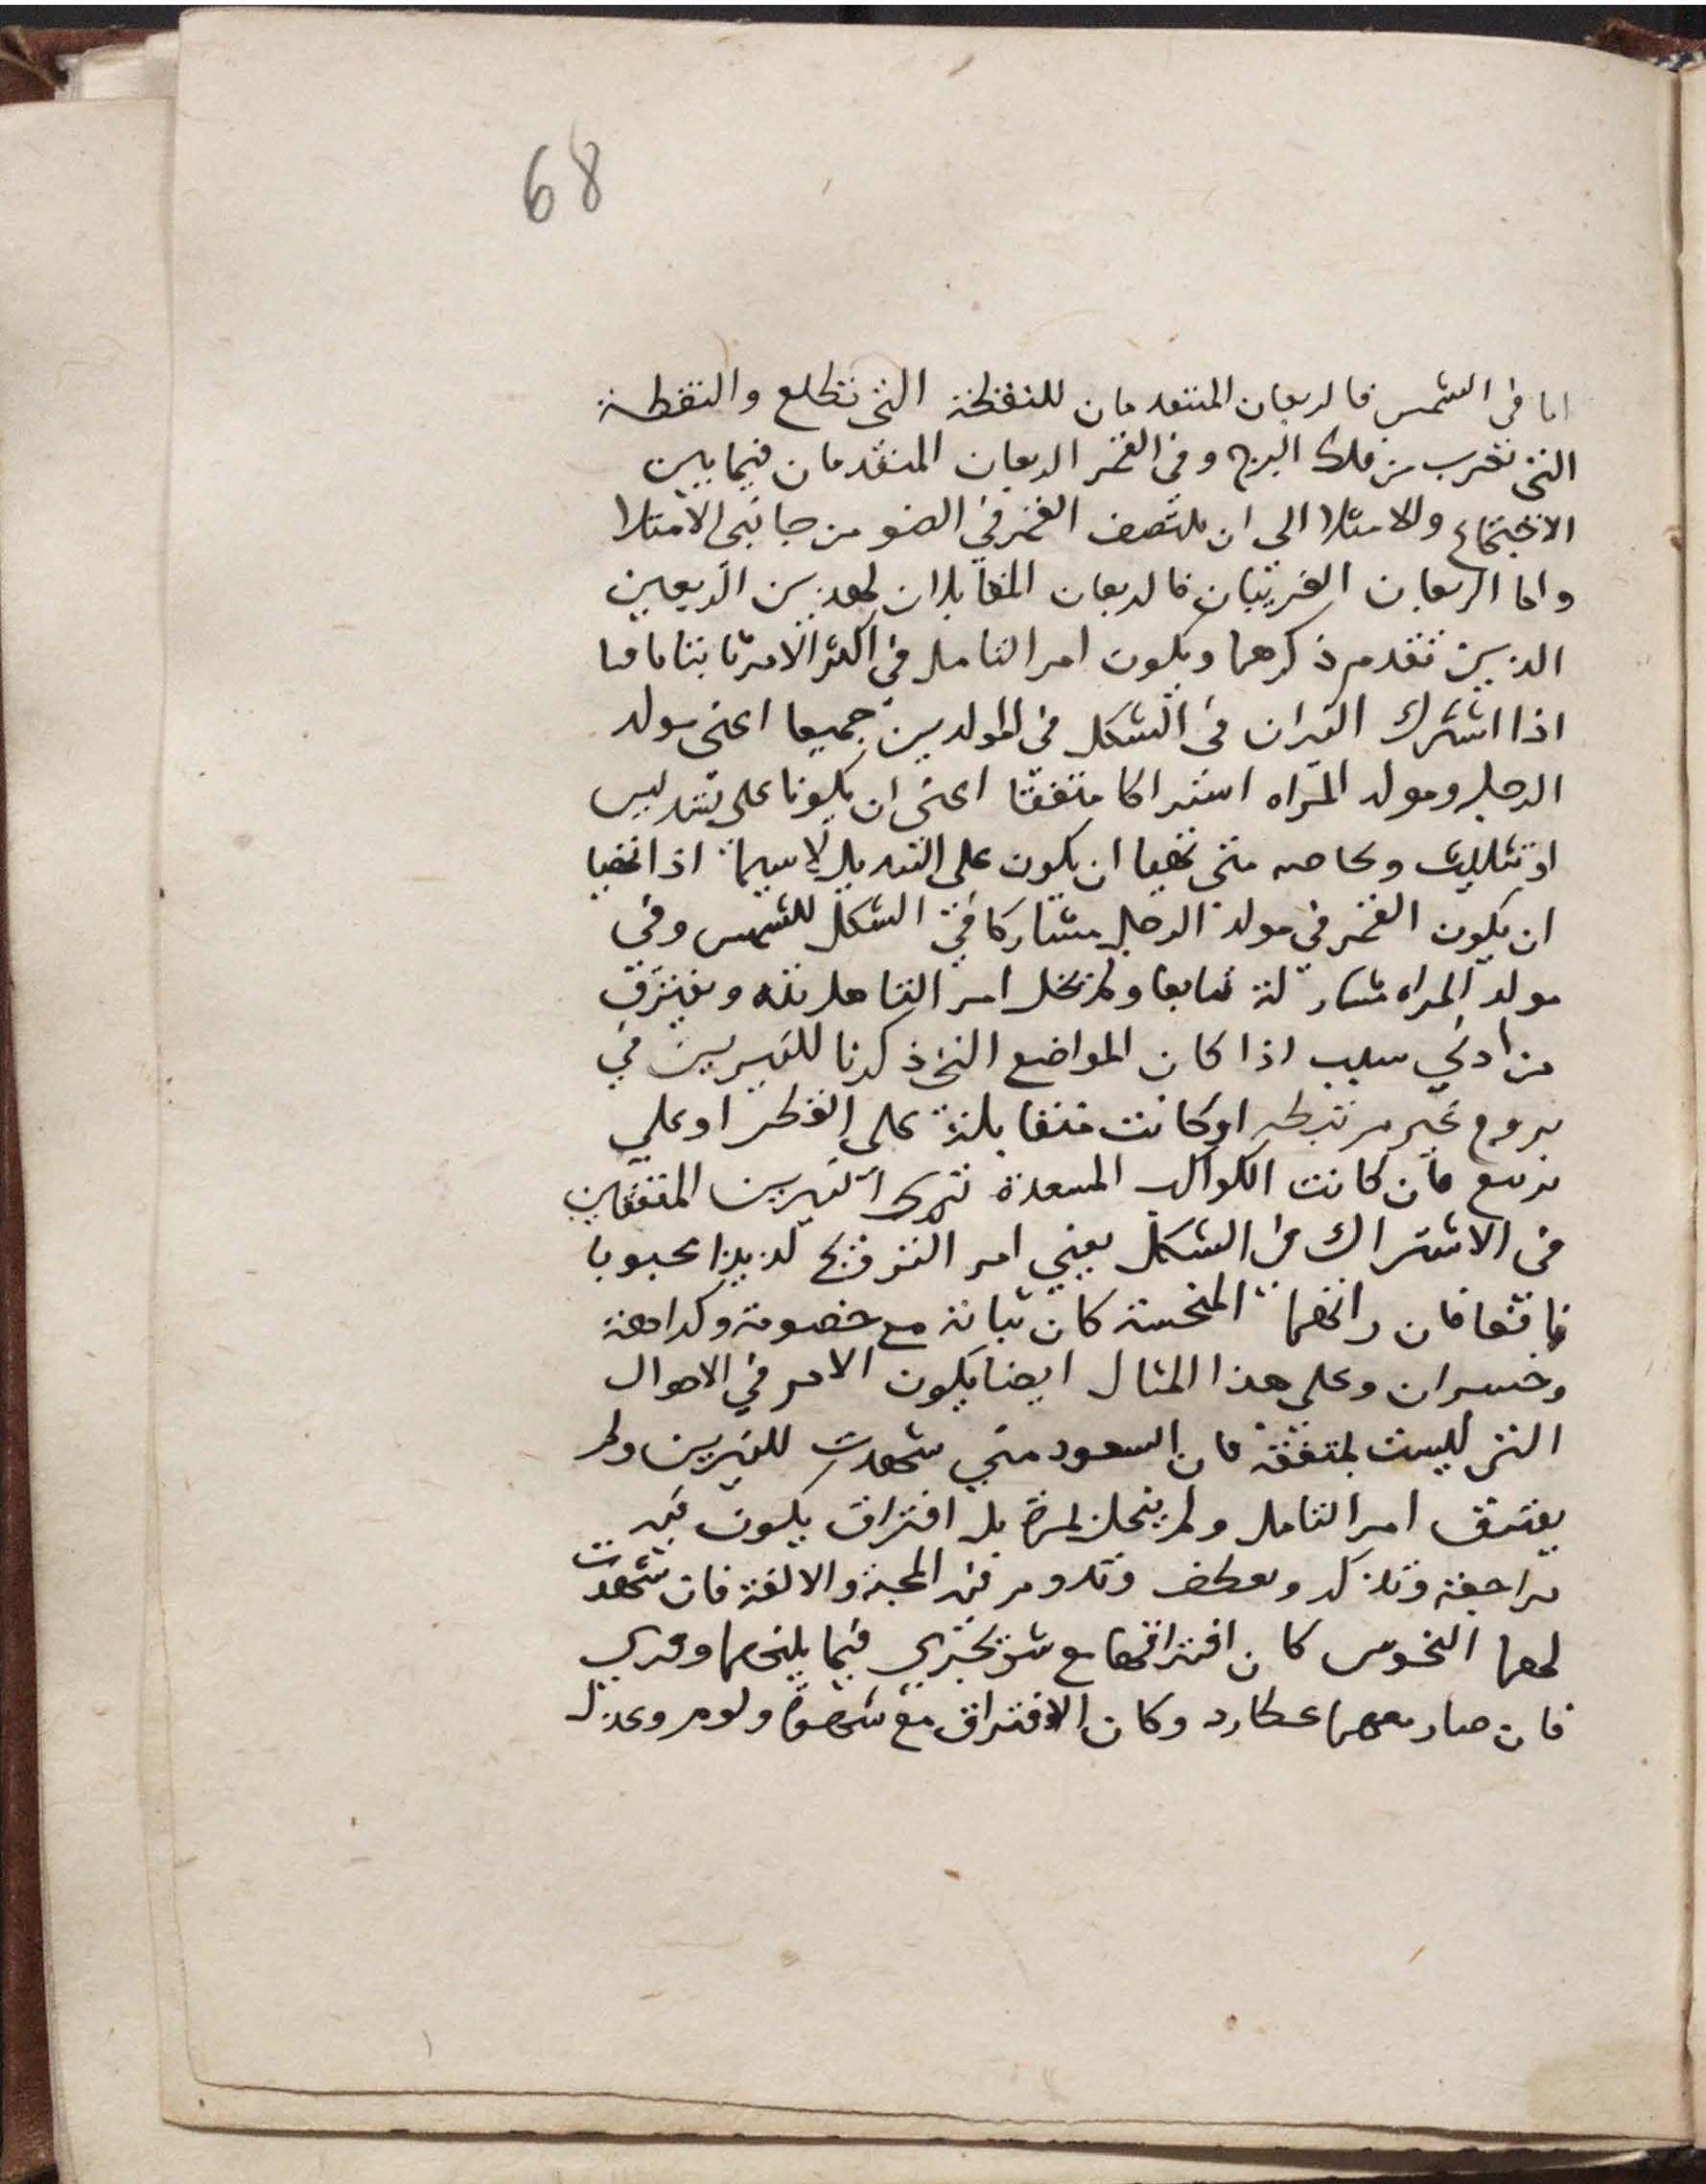 68
اما في الشمس فالربعان المتقدمان للنقطة التي تطلع والنقطة
التي تغرب من فلك البرج وفي القمر الربعان المتقدمان فيما بين
الاجتماع والامتلا الى ان ينتصف القمر في الضو من جانبي الامتلا
واما الربعان الغربيان فالربعان المقابلان لهذين الربعين
الذين تقدم ذكرهما ويكون امر التاهل في اكثر الامر ثابتا باقيا
اذا اشترك النيران في الشكل في المولدين جميعا اعني مولد
الرجل ومولد المراه اشتراكا متفقا اعني ان يكونا على تسديس
او تثليث وبخاصه متى تهيا ان يكون على التبديل لا سيما اذا تهيا
ان يكون القمر في مولد الرجل مشاركا في الشكل للشمس وفي
مولد المراه مشار له وينحل امر التاهل ويفترق
من ادنى سبب اذا كان المواضع التي ذكرنا للنيرين في
بروج غير مرتبطه او كانت متقابلة على القطر او على
تربيع فان كانت الكواكب المسعدة ترى النيرين المتفقين
في الاشتراك في الشكل بقي امر التزويج لذيذا محبوبا
نافعا فان راتهما المنحسة كان ثباته مع خصومة وكراهة
وخسران وعلى هذا المثال ايضا يكون الامر في الاحوال
التي ليست بمتفقة فان السعود متى شهدت للنيرين ولم
يفترق امر التاهل ولم ينحل بل افتراق يكون فيه
مراجعة وتذكر وتعطف وتدوم فيه المحبة والالفة فان شهدت
لهما النحوس كان افتراقهما مع شو يجري فيما بينهما
فان صار معهما عطارد وكان الافتراق مع شهوة ولوم وعذل